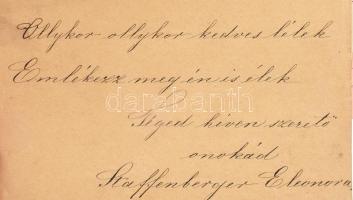 Ollykor ollykor kedves lélek
Emlékezz meg én is élek
Téged híven szerető
onokád
Staffenberger Eleonora